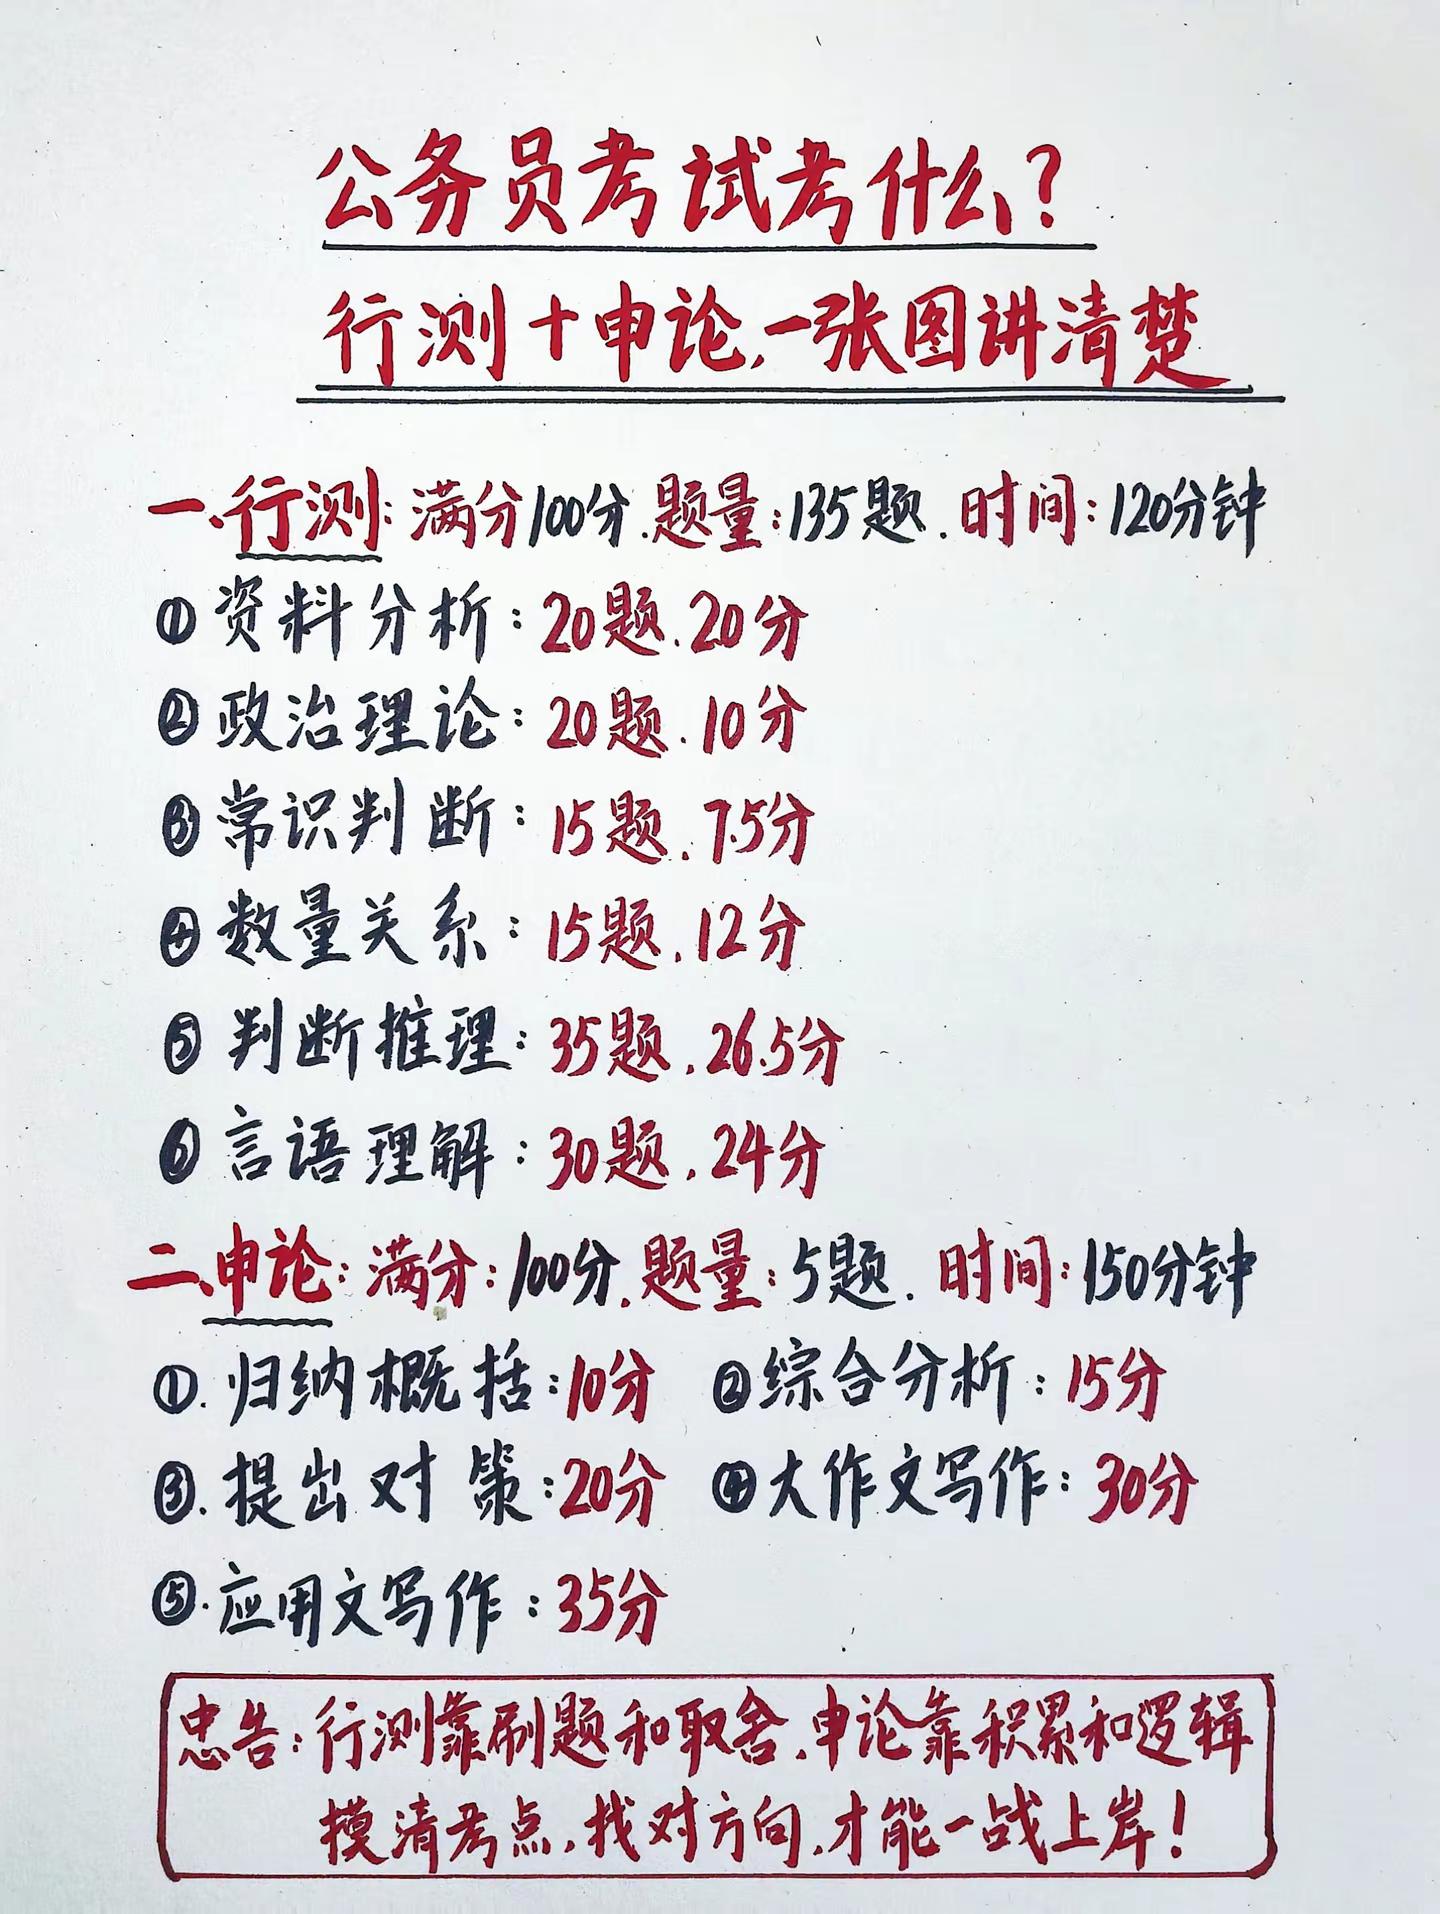 公务员考试考什么?
行测+申论,一张图讲清楚
一、行测:满分100分.题量:135题.时间:120分钟
①资料分析:20题.20分
②政治理论:20题.10分
③常识判断:15题.7.5分
④数量关系:15题.12分
⑤判断推理:35题.26.5分
⑥言语理解:30题.24分
二、申论:满分:100分.题量:5题.时间:150分钟
①.归纳概括:10分 ②综合分析:15分
③.提出对策:20分 ④大作文写作:30分
⑤.应用文写作:35分
忠告:行测靠刷题和取舍,申论靠积累和逻辑
摸清考点,找对方向,才能一战上岸!